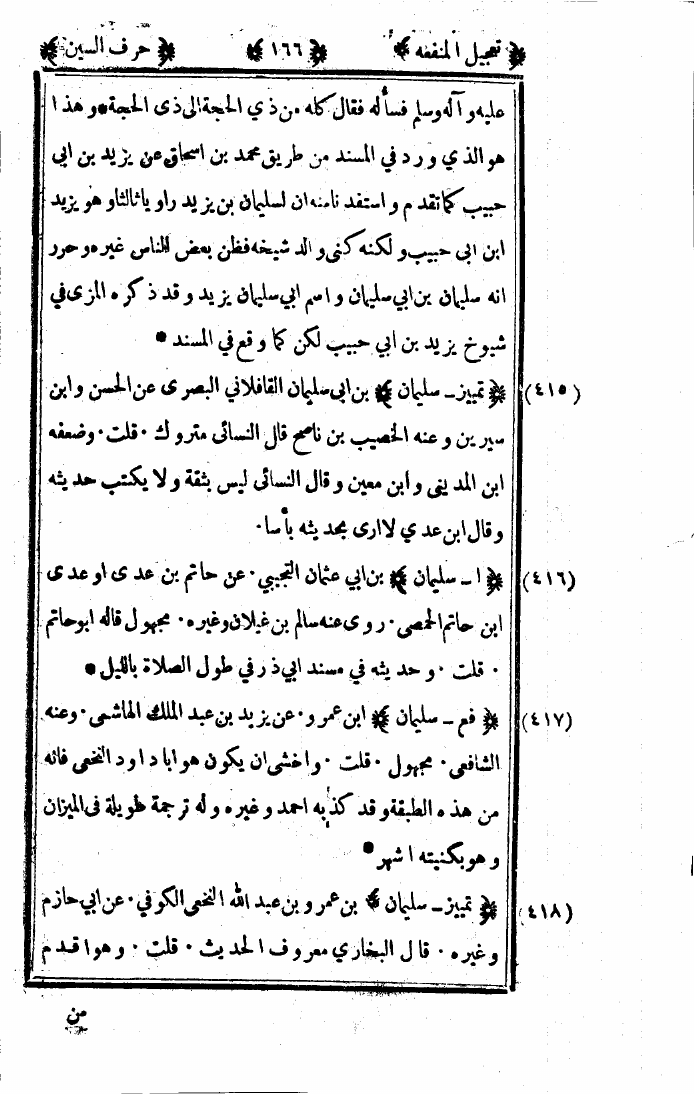 ﴿ تعجيل المنفعه ﴾ ﴿ ١٦٦ ﴾ ﴿ حرف السين ﴾
عليه و آله وسلم فسأله فقال كله من ذي الحجة الى ذى الحجة • و هذا
هو الذي و رد في المسند من طريق محمد بن اسحاق عن يزيد بن ابى
حبيب كما تقدم و استفدنا منه ان لسليمان بن يزيد راويا ثالثا و هو يزيد
ابن ابى حبيب و لكنه كنى و الد شيخه فظن بعض الناس غيره و حرر
انه سليمان بن ابي سليمان و اسم ابي سليمان يزيد و قد ذكره المزى في
شيوخ يزيد بن ابي حبيب لكن كما وقع في المسند •
(٤١٥) ﴿ تمييز ـ سليمان ﴾ بن ابى سليمان القافلاني البصرى عن الحسن و ابن
سيرين و عنه الخصيب بن ناصح قال النسائى متروك · قلت · وضعفه
ابن المدينى و ابن معين و قال النسائى ليس بثقة و لا يكتب حديثه
و قال ابن عدي لا ارى بحديثه بأسا ·
(٤١٦) ﴿ ا ـ سليمان ﴾ بن ابي عثمان التجيبي · عن حاتم بن عدى او عدى
ابن حاتم الحمصى · روى عنه سالم بن غيلان وغيره · مجهول قاله ابو حاتم
· قلت · و حديثه في مسند ابي ذر في طول الصلاة بالليل •
(٤١٧) ﴿ فع ـ سليمان ﴾ ابن عمرو · عن يزيد بن عبد الملك الهاشمى · وعنه
الشافعى · مجهول · قلت · واخشى ان يكون هو ابا داود النخعى فانه
من هذه الطبقة و قد كذبه احمد وغيره وله ترجمة طويلة فى الميزان
و هو بكنيته اشهر •
(٤١٨) ﴿ تمييز ـ سليمان ﴾ بن عمرو بن عبد الله النخعى الكوفي · عن ابي حازم
وغيره · قال البخاري معروف الحديث · قلت · و هو اقدم
من